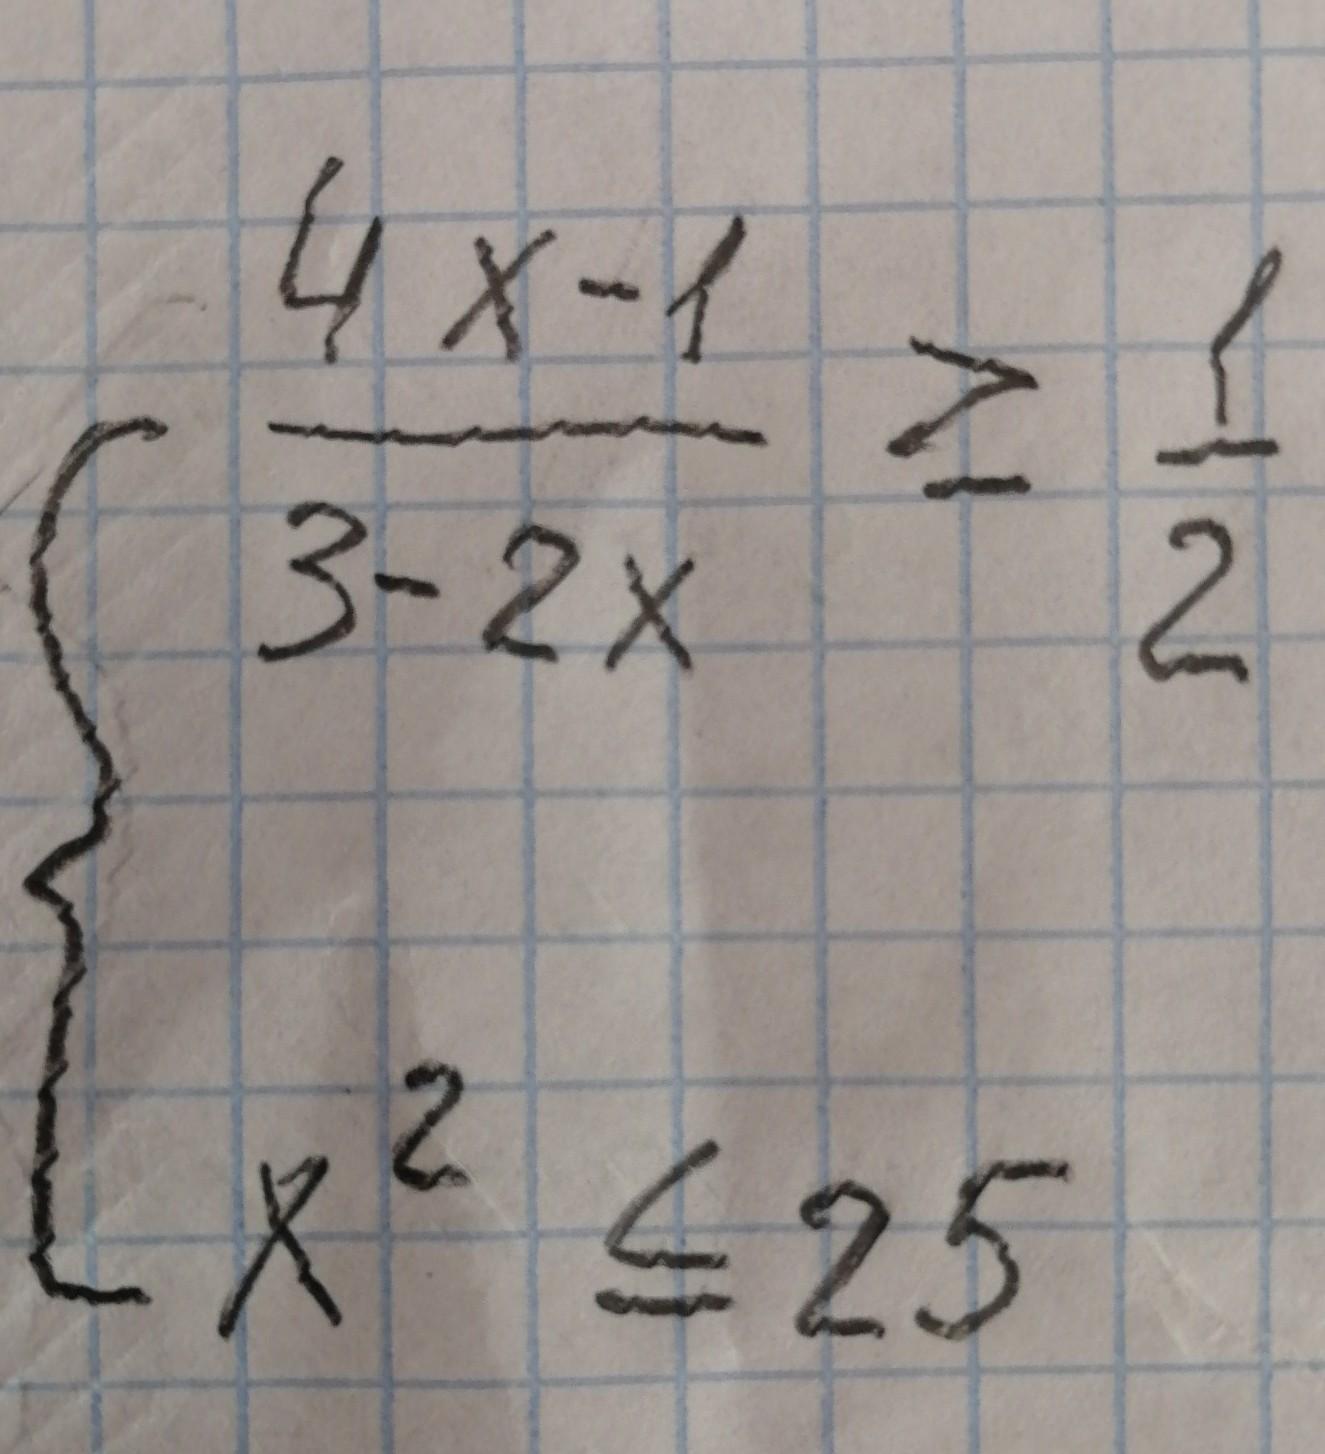 4x-1
3-2x
≥ 1/2
x² ≤ 25